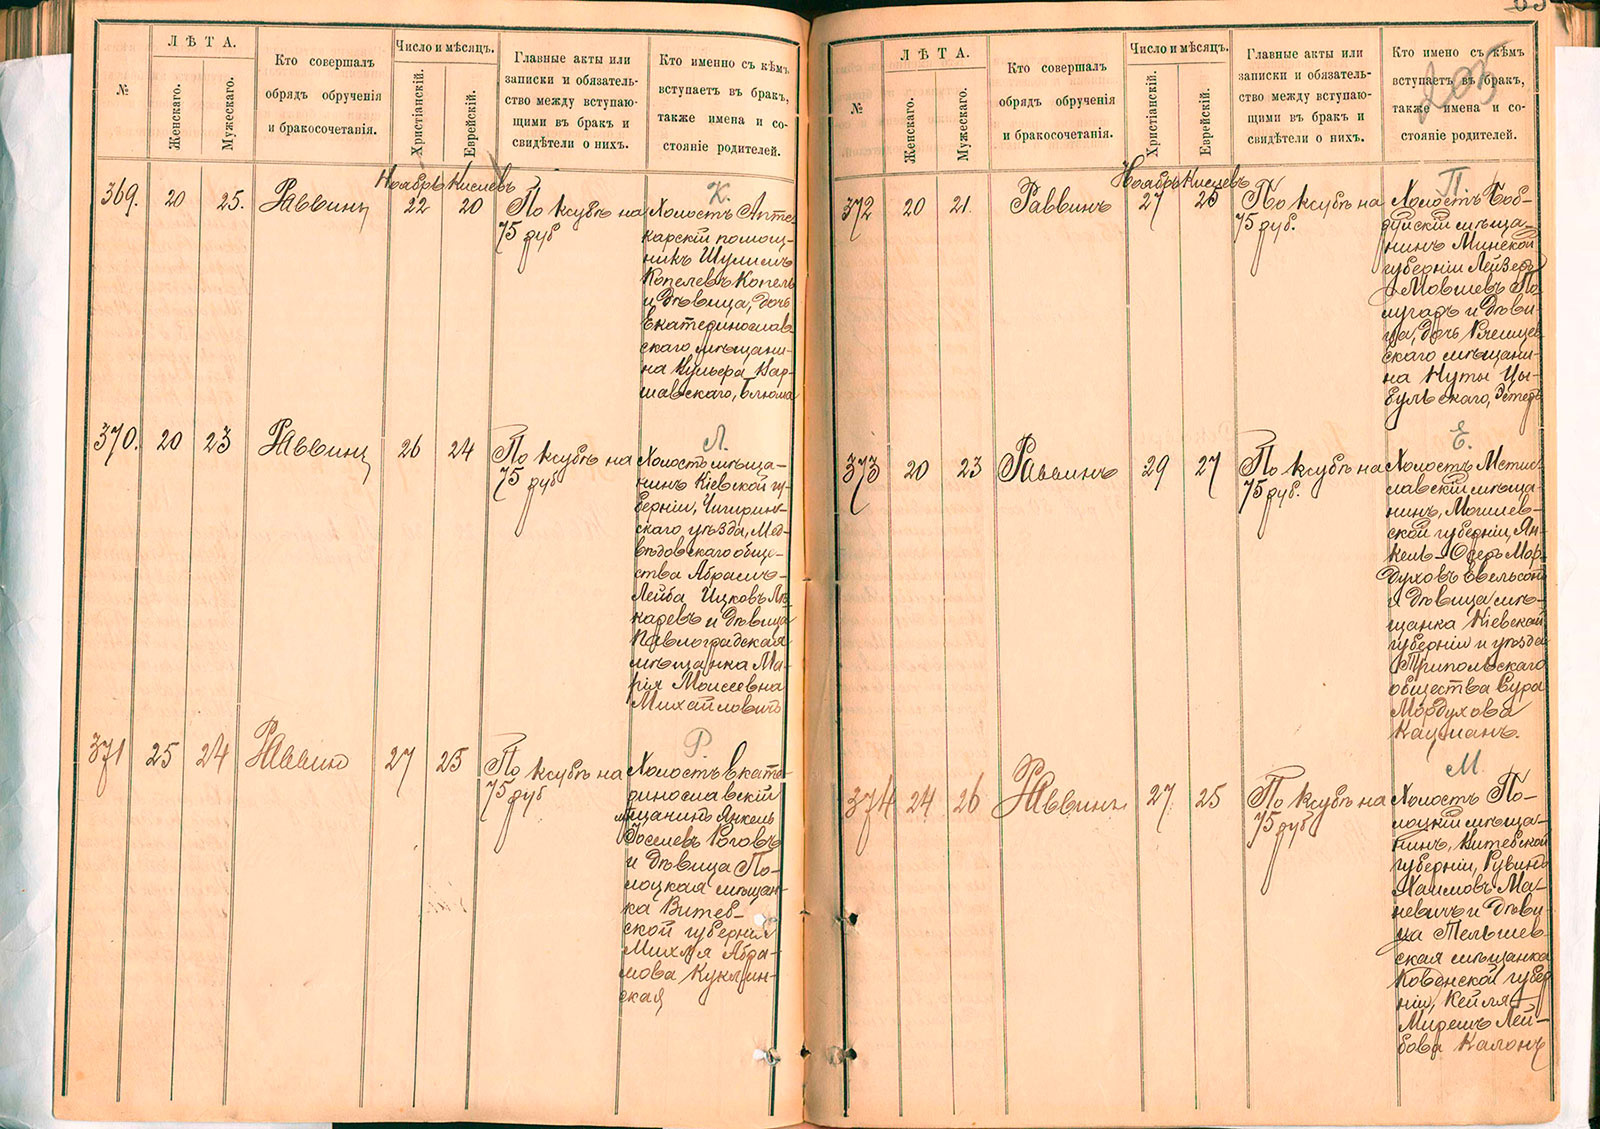 №
ЛѢТА.
Женскаго.
Мужескаго.
Кто совершалъ
обрядъ обрученія
и бракосочетанія.
Число и мѣсяцъ.
Христіанскій.
Еврейскій.
Главные акты или
записки и обязатель-
ство между вступаю-
щими въ бракъ и
свидѣтели о нихъ.
Кто именно съ кѣмъ
вступаетъ въ бракъ,
также имена и со-
стояніе родителей.
Ноябрь Кислевъ
369. 20 25. Раввинъ 22 20
По ксубѣ на
75 руб
К.
Холостъ Апте-
карскій помощ-
никъ Шулимъ
Копелевъ Копель
и дѣвица, дочь
Екатеринослав-
скаго мѣщани-
на Вульфа Вар-
шавскаго, Блюма
370. 20 23 Раввинъ 26 24
По ксубѣ на
75 руб
Л.
Холостъ мѣща-
нинъ Кіевской гу-
берніи, Чигирин-
скаго уѣзда, Мед-
вѣдовскаго обще-
ства Абрамъ-
Лейба Ицковъ
и дѣвица
Павлоградская
мѣщанка Ма-
рія Моисеевна
Михайловичъ
371 25 24 Раввинъ 27 25
По ксубѣ на
75 руб
Р.
Холостъ Екате-
ринославскій
мѣщанинъ Янкель
Іоселевъ Роговъ
и дѣвица По-
лоцкая мѣщан-
ка Витеб-
ской губерніи
Михля Абра-
мова Куклин-
ская
№
ЛѢТА.
Женскаго.
Мужескаго.
Кто совершалъ
обрядъ обрученія
и бракосочетанія.
Число и мѣсяцъ.
Христіанскій.
Еврейскій.
Главные акты или
записки и обязатель-
ство между вступаю-
щими въ бракъ и
свидѣтели о нихъ.
Кто имено съ кѣмъ
вступаетъ въ бракъ,
также имена и со-
стояніе родителей.
Ноябрь Кислевъ
372 20 21. Раввинъ 27 25
По ксубѣ на
75 руб.
П.
Холостъ Боб-
руйскій мѣща-
нинъ Минской
губерніи Лейзеръ
Мовшевъ По-
лугаръ и дѣви-
ца, дочь
скаго мѣщани-
на Нуты Цы-
бульскаго, Эстеръ
373 20 23 Раввинъ 29 27
По ксубѣ на
75 руб.
Е.
Холостъ Мстис-
лавскій мѣща-
нинъ, Могилев-
ской губерніи, Ян-
кель-Оферъ Мор-
духовъ Евельсонъ
и дѣвица мѣ-
щанка Кіевской
губерніи и уѣзда
Трипольскаго
общества Сура
Мордухова
Кацманъ.
374 24 26 Раввинъ 27 25
По ксубѣ на
75 руб
М.
Холостъ По-
лоцкій мѣща-
нинъ, Витебской
губерніи, Рувинъ
Хаимовъ Ма-
невичъ и дѣви-
ца Тельшев-
ская мѣщанка
Ковенской губер-
ніи, Кейля-
Миремъ Лей-
бова Калонъ